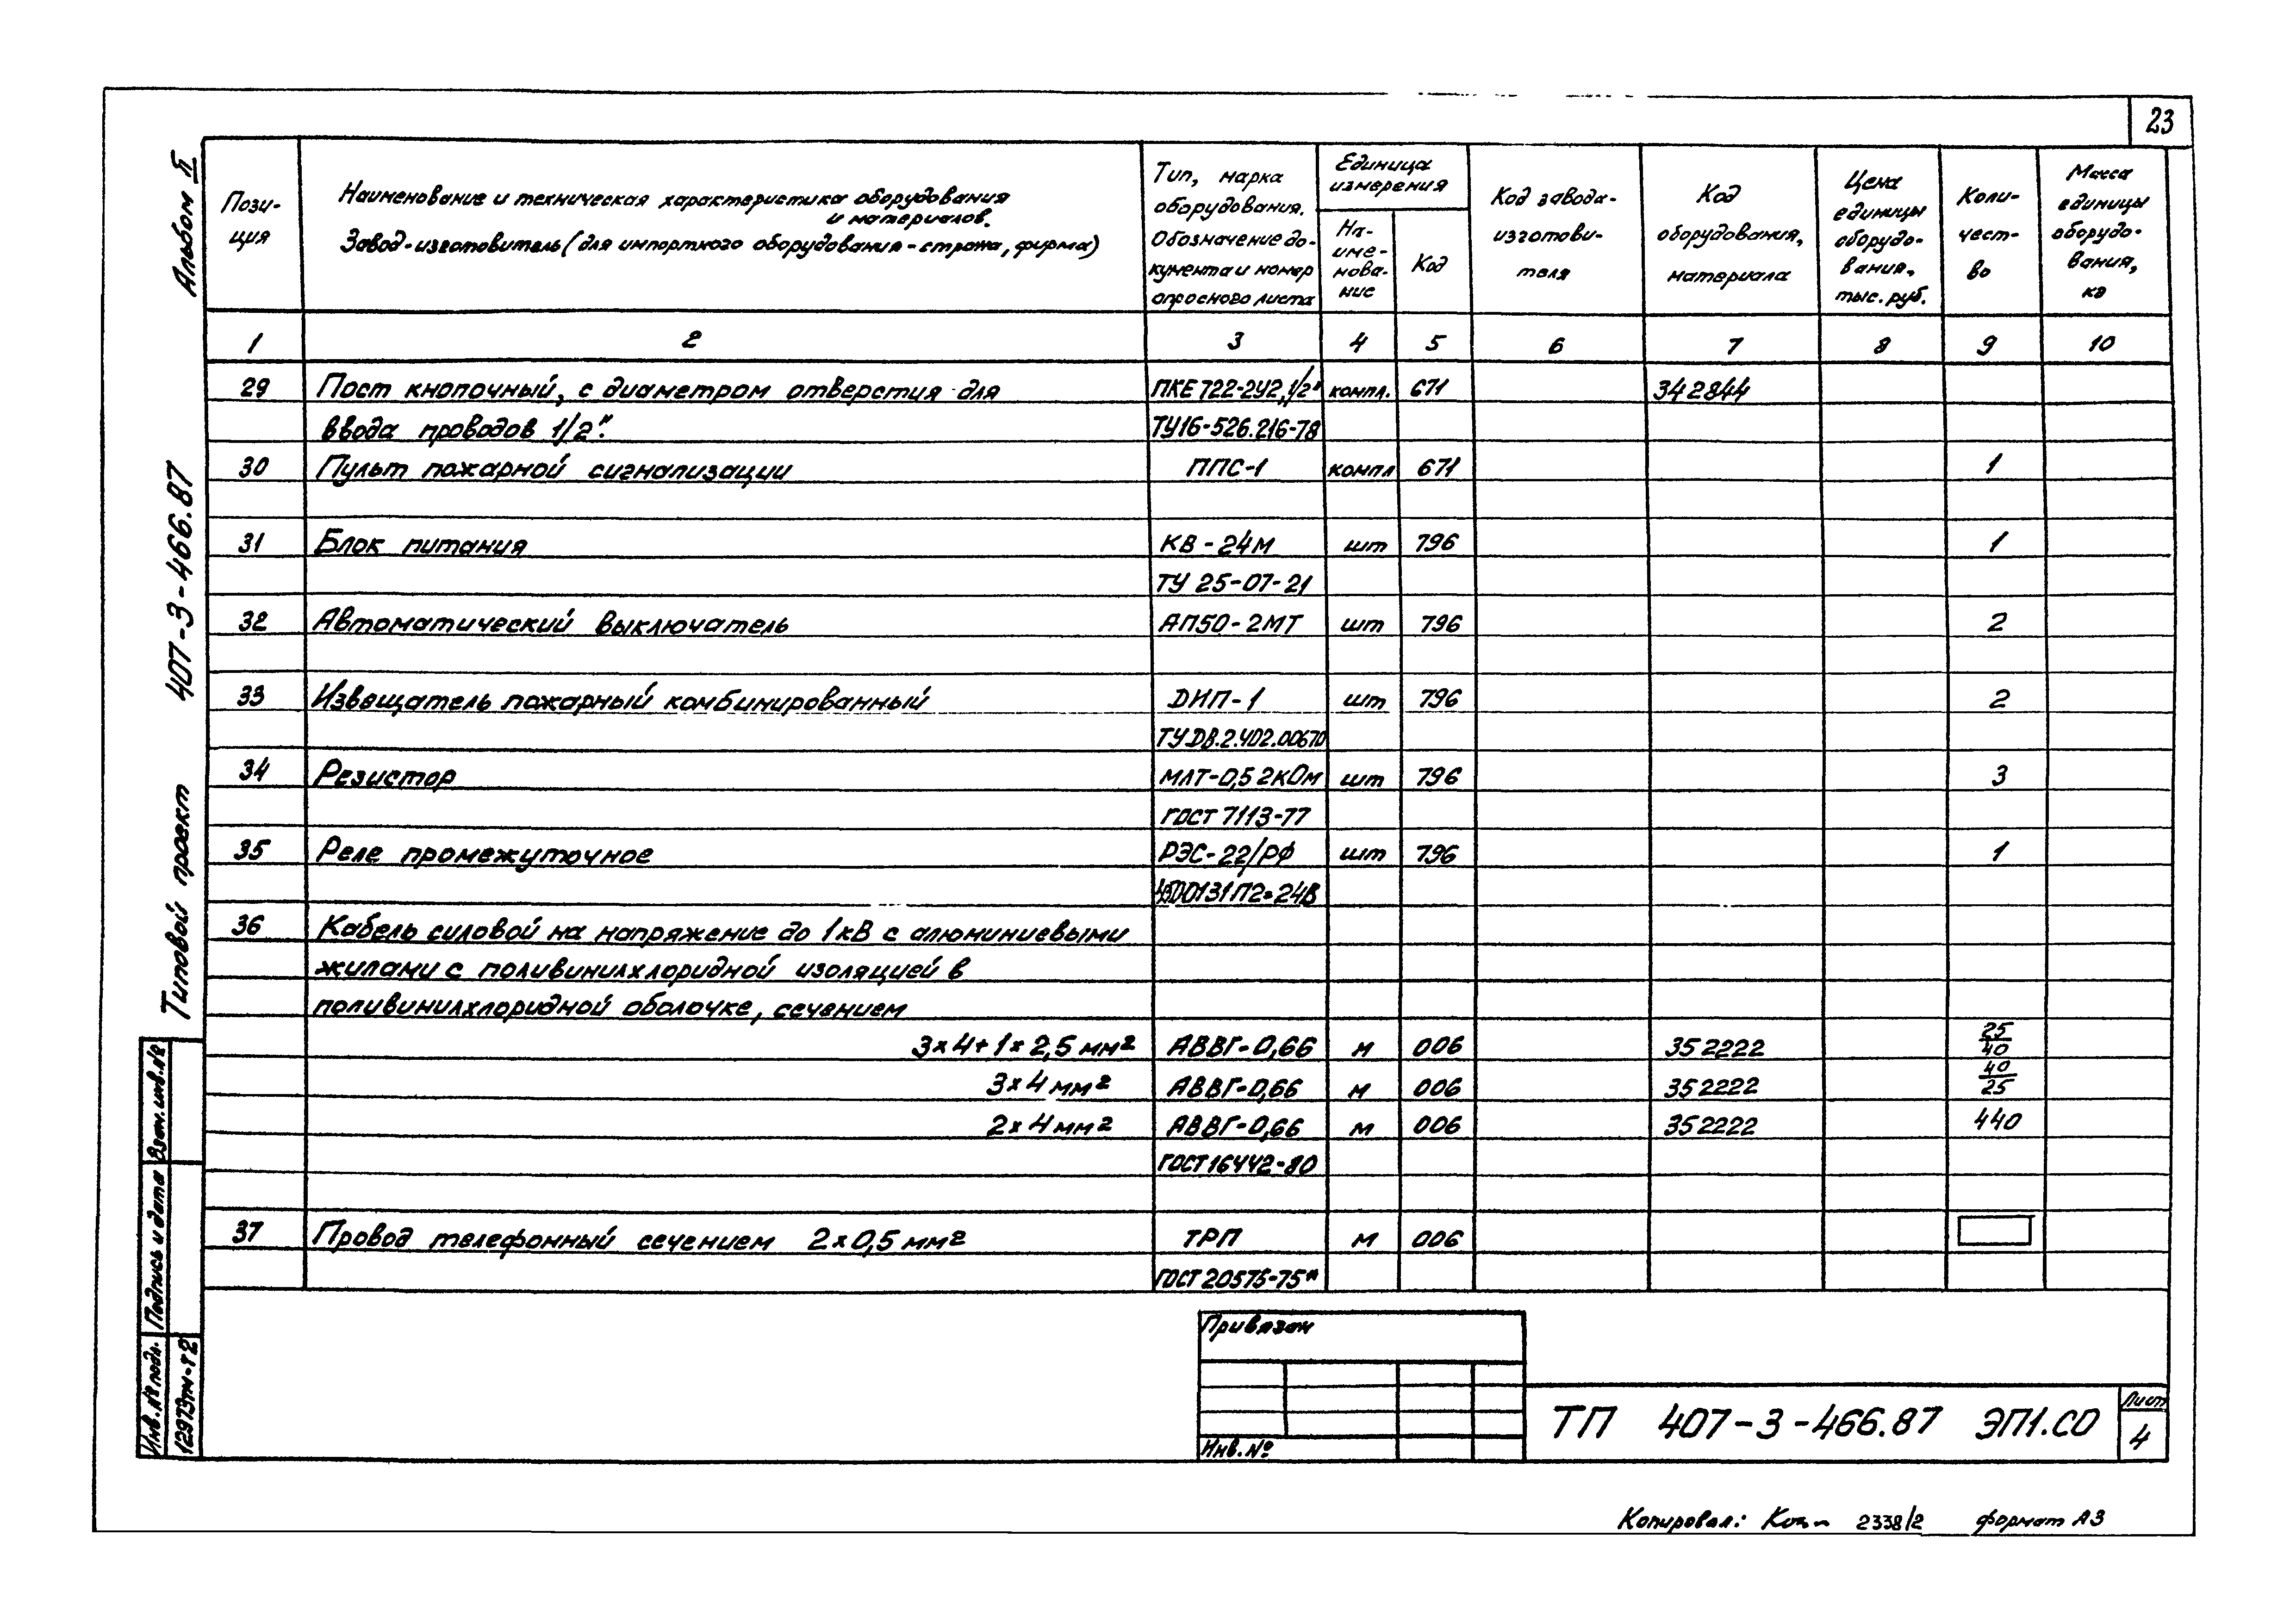 23
Альбом II
Типовой проект 407-3-466.87
Пози-
ция
Наименование и техническая характеристика оборудования
и материалов.
Завод-изготовитель (для импортного оборудования - страна, фирма)
Тип, марка
оборудования.
Обозначение до-
кумента и номер
опросного листа
Единица
измерения
На-
име-
нова-
ние
Код
Код завода-
изготови-
теля
Код
оборудования,
материала
Цена
единицы
оборудо-
вания,
тыс. руб.
Коли-
чест-
во
Масса
единицы
оборудо-
вания,
кг
1 2 3 4 5 6 7 8 9 10
29 Пост кнопочный, с диаметром отверстия для ПКЕ 722-2У2, 1/2" компл. 671 342844
ввода проводов 1/2". ТУ16-526.216-78
30 Пульт пожарной сигнализации ППС-1 компл 671 1
31 Блок питания КВ-24М шт 796 1
ТУ 25-07-21
32 Автоматический выключатель АП50-2МТ шт 796 2
33 Извещатель пожарный комбинированный ДИП-1 шт 796 2
ТУДВ.2.402.00670
34 Резистор МЛТ-0,5 2кОм шт 796 3
ГОСТ 7113-77
35 Реле промежуточное РЭС-22/РФ шт 796 1
36 Кабель силовой на напряжение до 1кВ с алюминиевыми
жилами с поливинилхлоридной изоляцией в
поливинилхлоридной оболочке, сечением
3×4+1×2,5 мм² АВВГ-0,66 м 006 352222 25/40
3×4 мм² АВВГ-0,66 м 006 352222 40/25
2×4 мм² АВВГ-0,66 м 006 352222 440
ГОСТ 16442-80
37 Провод телефонный сечением 2×0,5 мм² ТРП м 006
ГОСТ 20575-75*
Взам. инв. №
Подпись и дата
Инв. № подл.
12973тм-т2
Привязан
Инв. №
ТП 407-3-466.87 ЭП1.СО
Лист
4
Копировал: 2338/2 формат А3